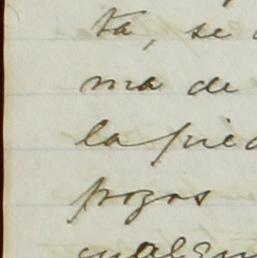 ta, se
ma de
la pied
pozos